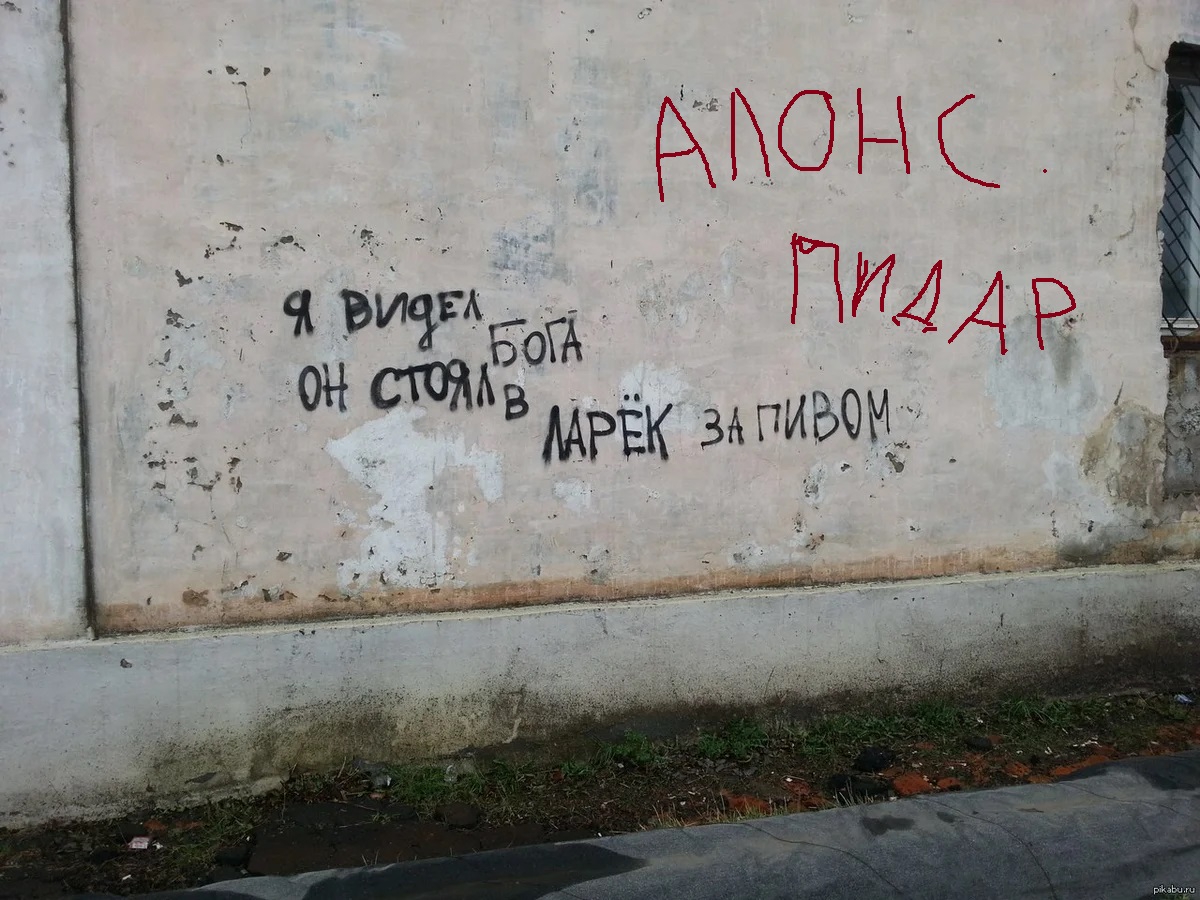 АЛОНС.
ПИДАР
Я ВИДЕЛ
БОГА
ОН СТОЯЛ В
ЛАРЁК ЗА ПИВОМ
pikabu.ru